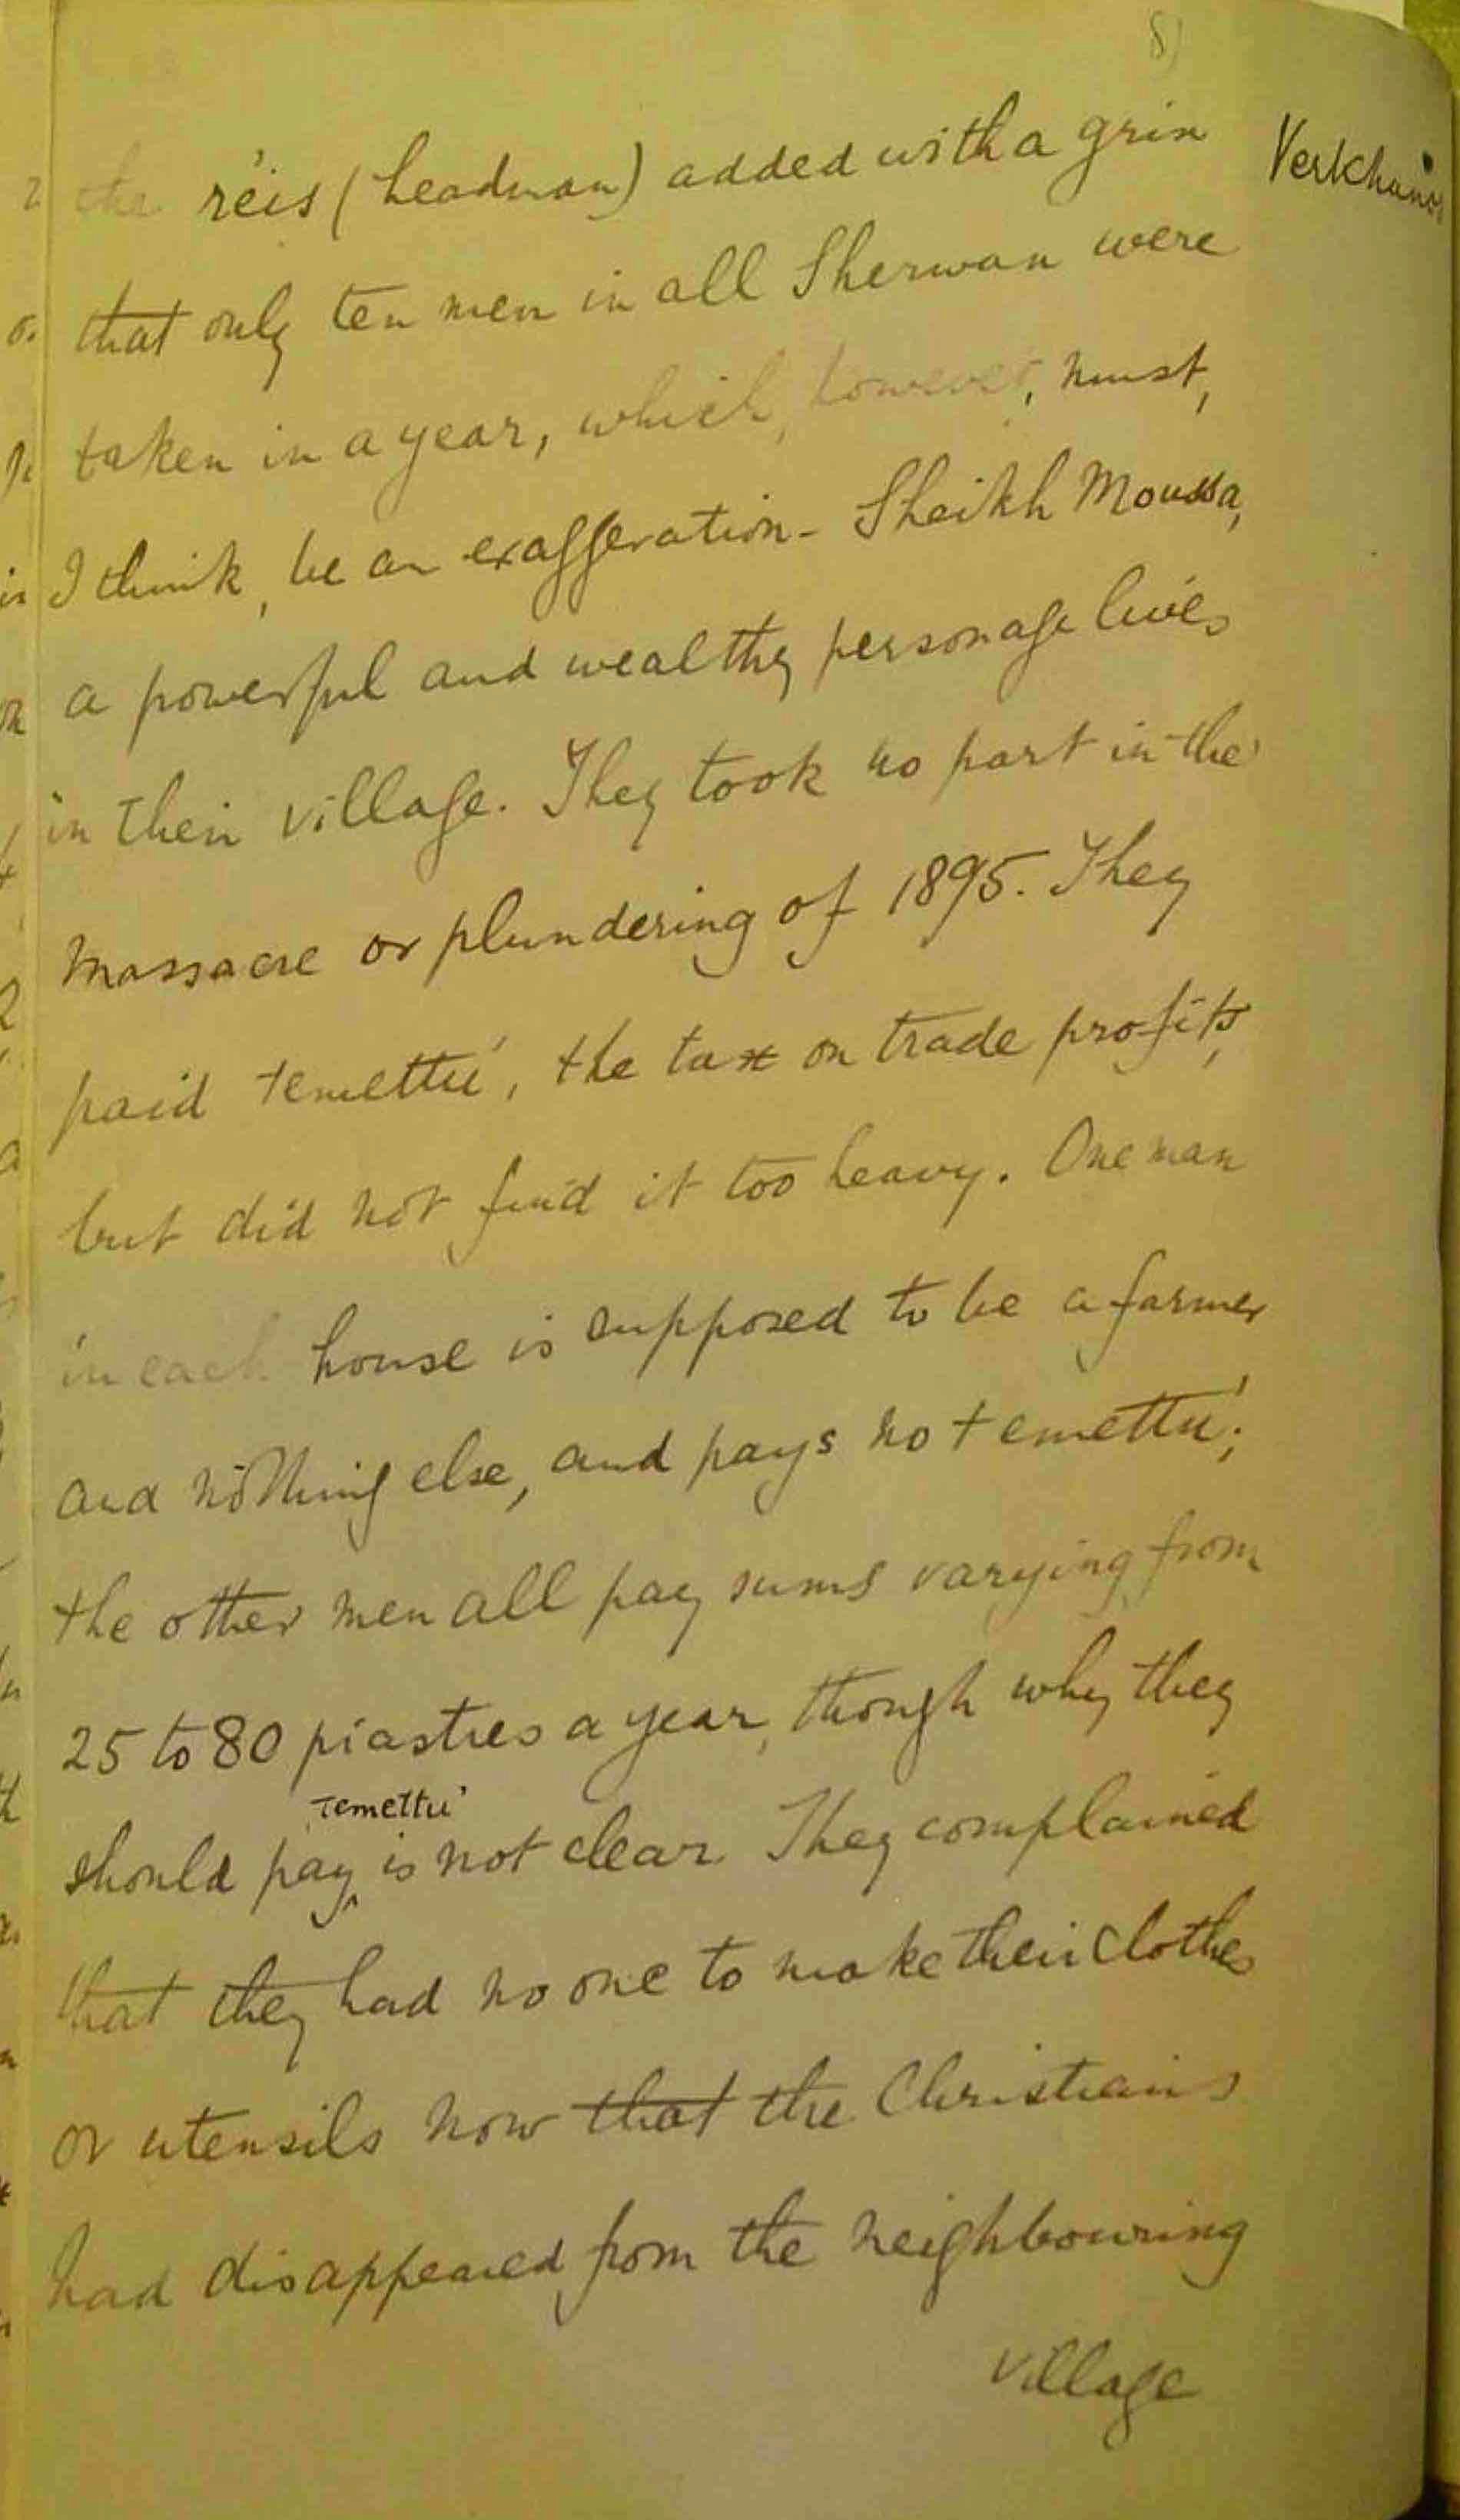 8)
the réis (headman) added with a grin
that only ten men in all Sherwan were
taken in a year, which, however, must,
I think, be an exaggeration - Sheikh Moussa,
a powerful and wealthy personage lives
in their village. They took no part in the
massacre or plundering of 1895. They
paid temettu', the tax on trade profits,
but did not find it too heavy. One man
in each house is supposed to be a farmer
and nothing else, and pays no temettu';
the other men all pay sums varying from
25 to 80 piastres a year, though why they
temettu'
should pay is not clear. They complained
that they had no one to make their clothes
or utensils now that the Christians
had disappeared from the neighbouring
village